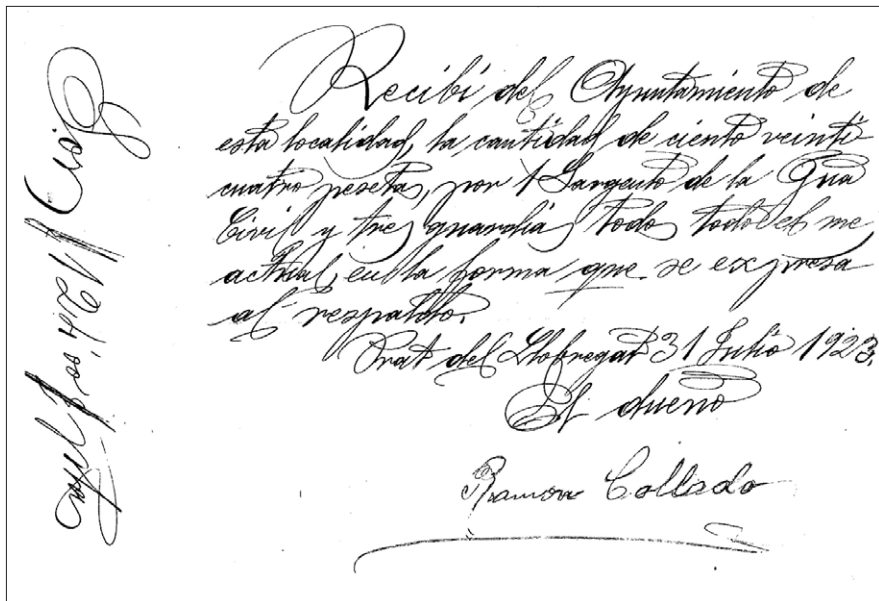 Recibí del Ayuntamiento de
esta localidad, la cantidad de ciento veinti-
cuatro pesetas, por 1 Sargento de la Gua
Civil y tres guardias todo todo el me
actual, en la forma que se expresa
al respaldo.
Prat del Llobregat 31 Julio 1923.
El dueño
Ramon Collado
124'00